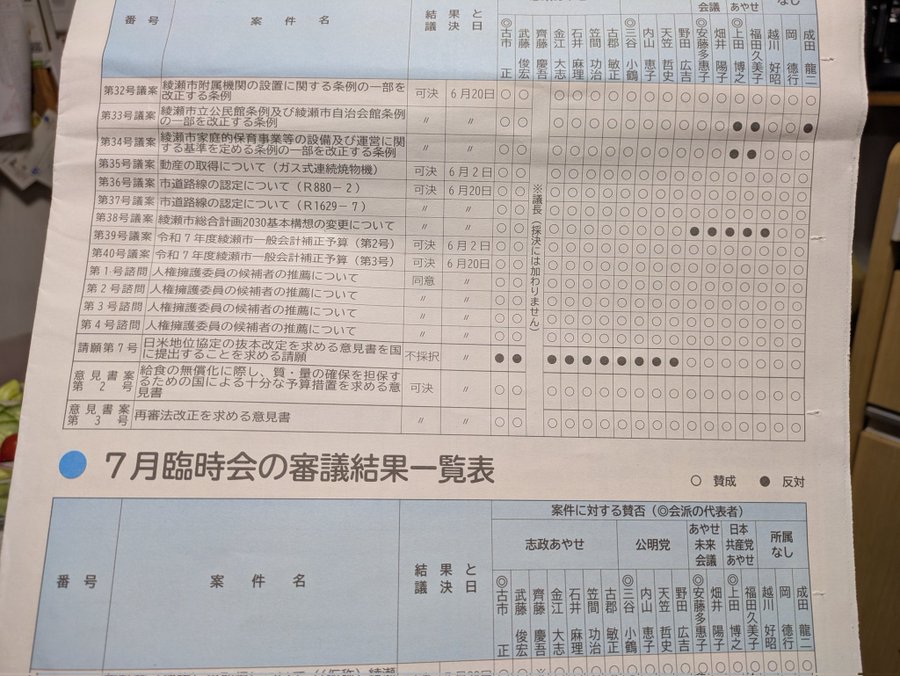 番号 案件名 結果と議決日
会議 あやせ なし
◎古市正 武藤俊宏 齊藤慶吾 金江大志 石井麻理 笠間功治 古郡敏正 ◎三谷小鶴 内山恵子 天笠哲史 野田広吉 ◎安藤多惠子 畑井陽子 ◎上田博之 福田久美子 越川好昭 岡徳行 成田龍二
第32号議案 綾瀬市附属機関の設置に関する条例の一部を 可決 6月20日 ○ ○ ○ ○ ○ ○ ○ ○ ○ ○ ○ ○ ○ ○ ○ ○ ○
改正する条例
第33号議案 綾瀬市立公民館条例及び綾瀬市自治会館条例 〃 〃 ○ ○ ○ ○ ○ ○ ○ ○ ○ ○ ○ ○ ● ● ○ ○ ●
の一部を改正する条例
第34号議案 綾瀬市家庭的保育事業等の設備及び運営に関 〃 〃 ○ ○ ○ ○ ○ ○ ○ ○ ○ ○ ○ ○ ● ● ○ ○ ○
する基準を定める条例の一部を改正する条例
第35号議案 動産の取得について（ガス式連続焼物機） 可決 6月2日 ○ ○ ○ ○ ○ ○ ○ ○ ○ ○ ○ ○ ○ ○ ○ ○ ○
第36号議案 市道路線の認定について（R880－2） 可決 6月20日 ○ ○ ○ ○ ○ ○ ○ ○ ○ ○ ○ ○ ○ ○ ○ ○ ○
第37号議案 市道路線の認定について（R1629－7） 〃 〃 ○ ○ ○ ○ ○ ○ ○ ○ ○ ○ ○ ○ ○ ○ ○ ○ ○
第38号議案 綾瀬市総合計画2030基本構想の変更について 〃 〃 ○ ○ ○ ○ ○ ○ ○ ○ ○ ○ ● ● ● ● ● ○ ○
第39号議案 令和7年度綾瀬市一般会計補正予算（第2号） 可決 6月2日 ○ ○ ○ ○ ○ ○ ○ ○ ○ ○ ○ ○ ○ ○ ○ ○ ○
第40号議案 令和7年度綾瀬市一般会計補正予算（第3号） 可決 6月20日 ○ ○ ○ ○ ○ ○ ○ ○ ○ ○ ○ ○ ○ ○ ○ ○ ○
第1号諮問 人権擁護委員の候補者の推薦について 同意 〃 ○ ○ ○ ○ ○ ○ ○ ○ ○ ○ ○ ○ ○ ○ ○ ○ ○
第2号諮問 人権擁護委員の候補者の推薦について 〃 〃 ○ ○ ○ ○ ○ ○ ○ ○ ○ ○ ○ ○ ○ ○ ○ ○ ○
第3号諮問 人権擁護委員の候補者の推薦について 〃 〃 ○ ○ ○ ○ ○ ○ ○ ○ ○ ○ ○ ○ ○ ○ ○ ○ ○
第4号諮問 人権擁護委員の候補者の推薦について 〃 〃 ○ ○ ○ ○ ○ ○ ○ ○ ○ ○ ○ ○ ○ ○ ○ ○ ○
請願第7号 日米地位協定の抜本改定を求める意見書を国 不採択 〃 ● ● ● ● ● ● ● ● ● ● ○ ○ ○ ○ ○ ○ ○
に提出することを求める請願
意見書案第2号 給食の無償化に際し、質・量の確保を担保す 可決 〃 ○ ○ ○ ○ ○ ○ ○ ○ ○ ○ ○ ○ ○ ○ ○ ○ ○
るための国による十分な予算措置を求める意
見書
意見書案第3号 再審法改正を求める意見書 〃 〃 ○ ○ ○ ○ ○ ○ ○ ○ ○ ○ ○ ○ ○ ○ ○ ○ ○
※議長（採決には加わりません）
7月臨時会の審議結果一覧表
○ 賛成 ● 反対
番号 案件名 結果と議決日
案件に対する賛否（◎会派の代表者）
志政あやせ 公明党 あやせ未来会議 日本共産党あやせ 所属なし
◎古市正 武藤俊宏 齊藤慶吾 金江大志 石井麻理 笠間功治 古郡敏正 ◎三谷小鶴 内山恵子 天笠哲史 野田広吉 ◎安藤多惠子 畑井陽子 ◎上田博之 福田久美子 越川好昭 岡徳行 成田龍二